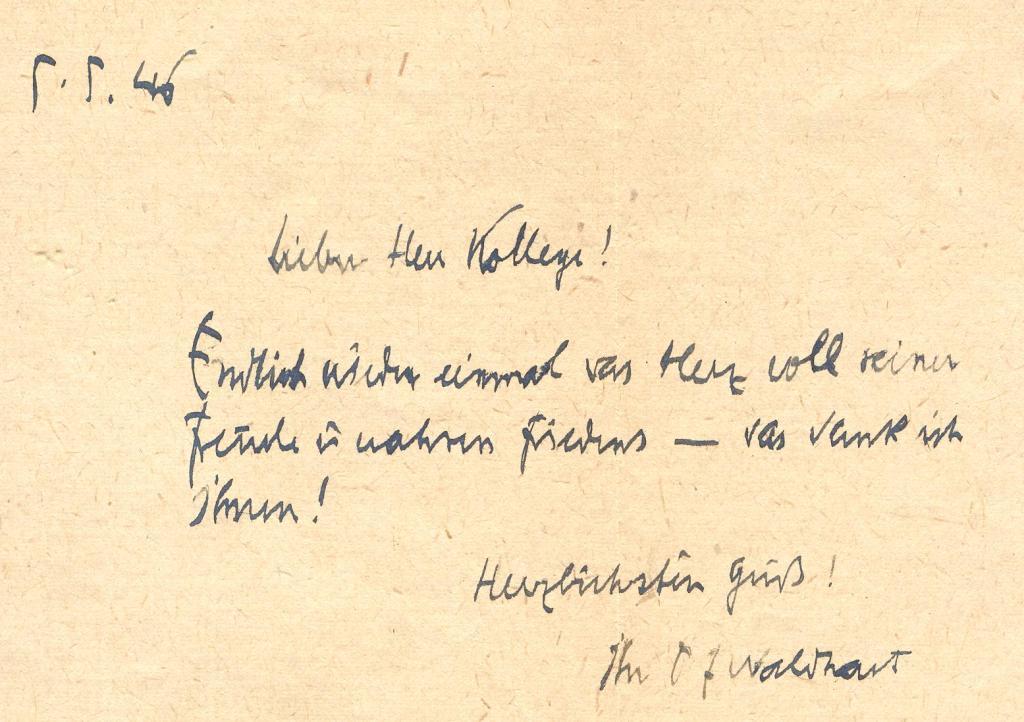 5. 5. 46
Lieber Herr Kollege!
Endlich wieder einmal das Herz voll reiner
Freude u wahren Friedens — das dank ich
Ihnen!
Herzlichsten Gruß!
Ihr Waldhart